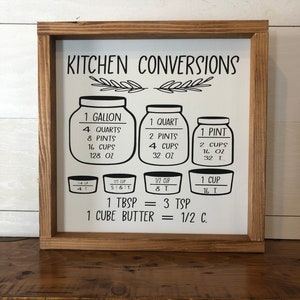 KITCHEN CONVERSIONS
1 GALLON
4 QUARTS
8 PINTS
16 CUPS
128 OZ
1 QUART
2 PINTS
4 CUPS
32 OZ
1 PINT
2 CUPS
16 OZ
32 T
1/4 CUP
4 T
1/3 CUP
1/2 CUP
8 T
1 CUP
16 T
1 TBSP = 3 TSP
1 CUBE BUTTER = 1/2 C.